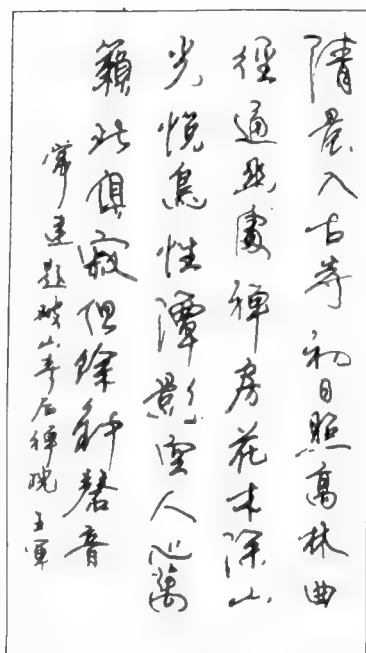 清晨入古寺初日照高林曲
徑通幽處禪房花木深山
光悦鳥性潭影空人心萬
籟此俱寂但餘鈡磬音
常建題破山寺后禪院 王軍